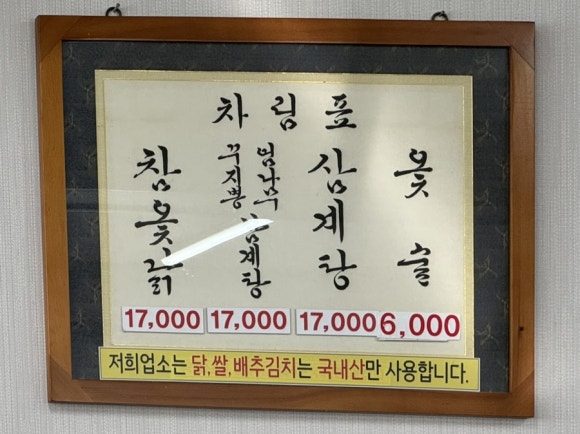 차림표
참옻닭
꾸지뽕
엄나무
삼계탕
삼계탕
옻술
17,000
17,000
17,000
6,000
저희업소는 닭,쌀,배추김치는 국내산만 사용합니다.